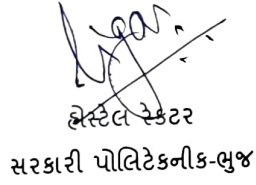 હોસ્ટેલ રેક્ટર
સરકારી પોલિટેકનીક-ભુજ